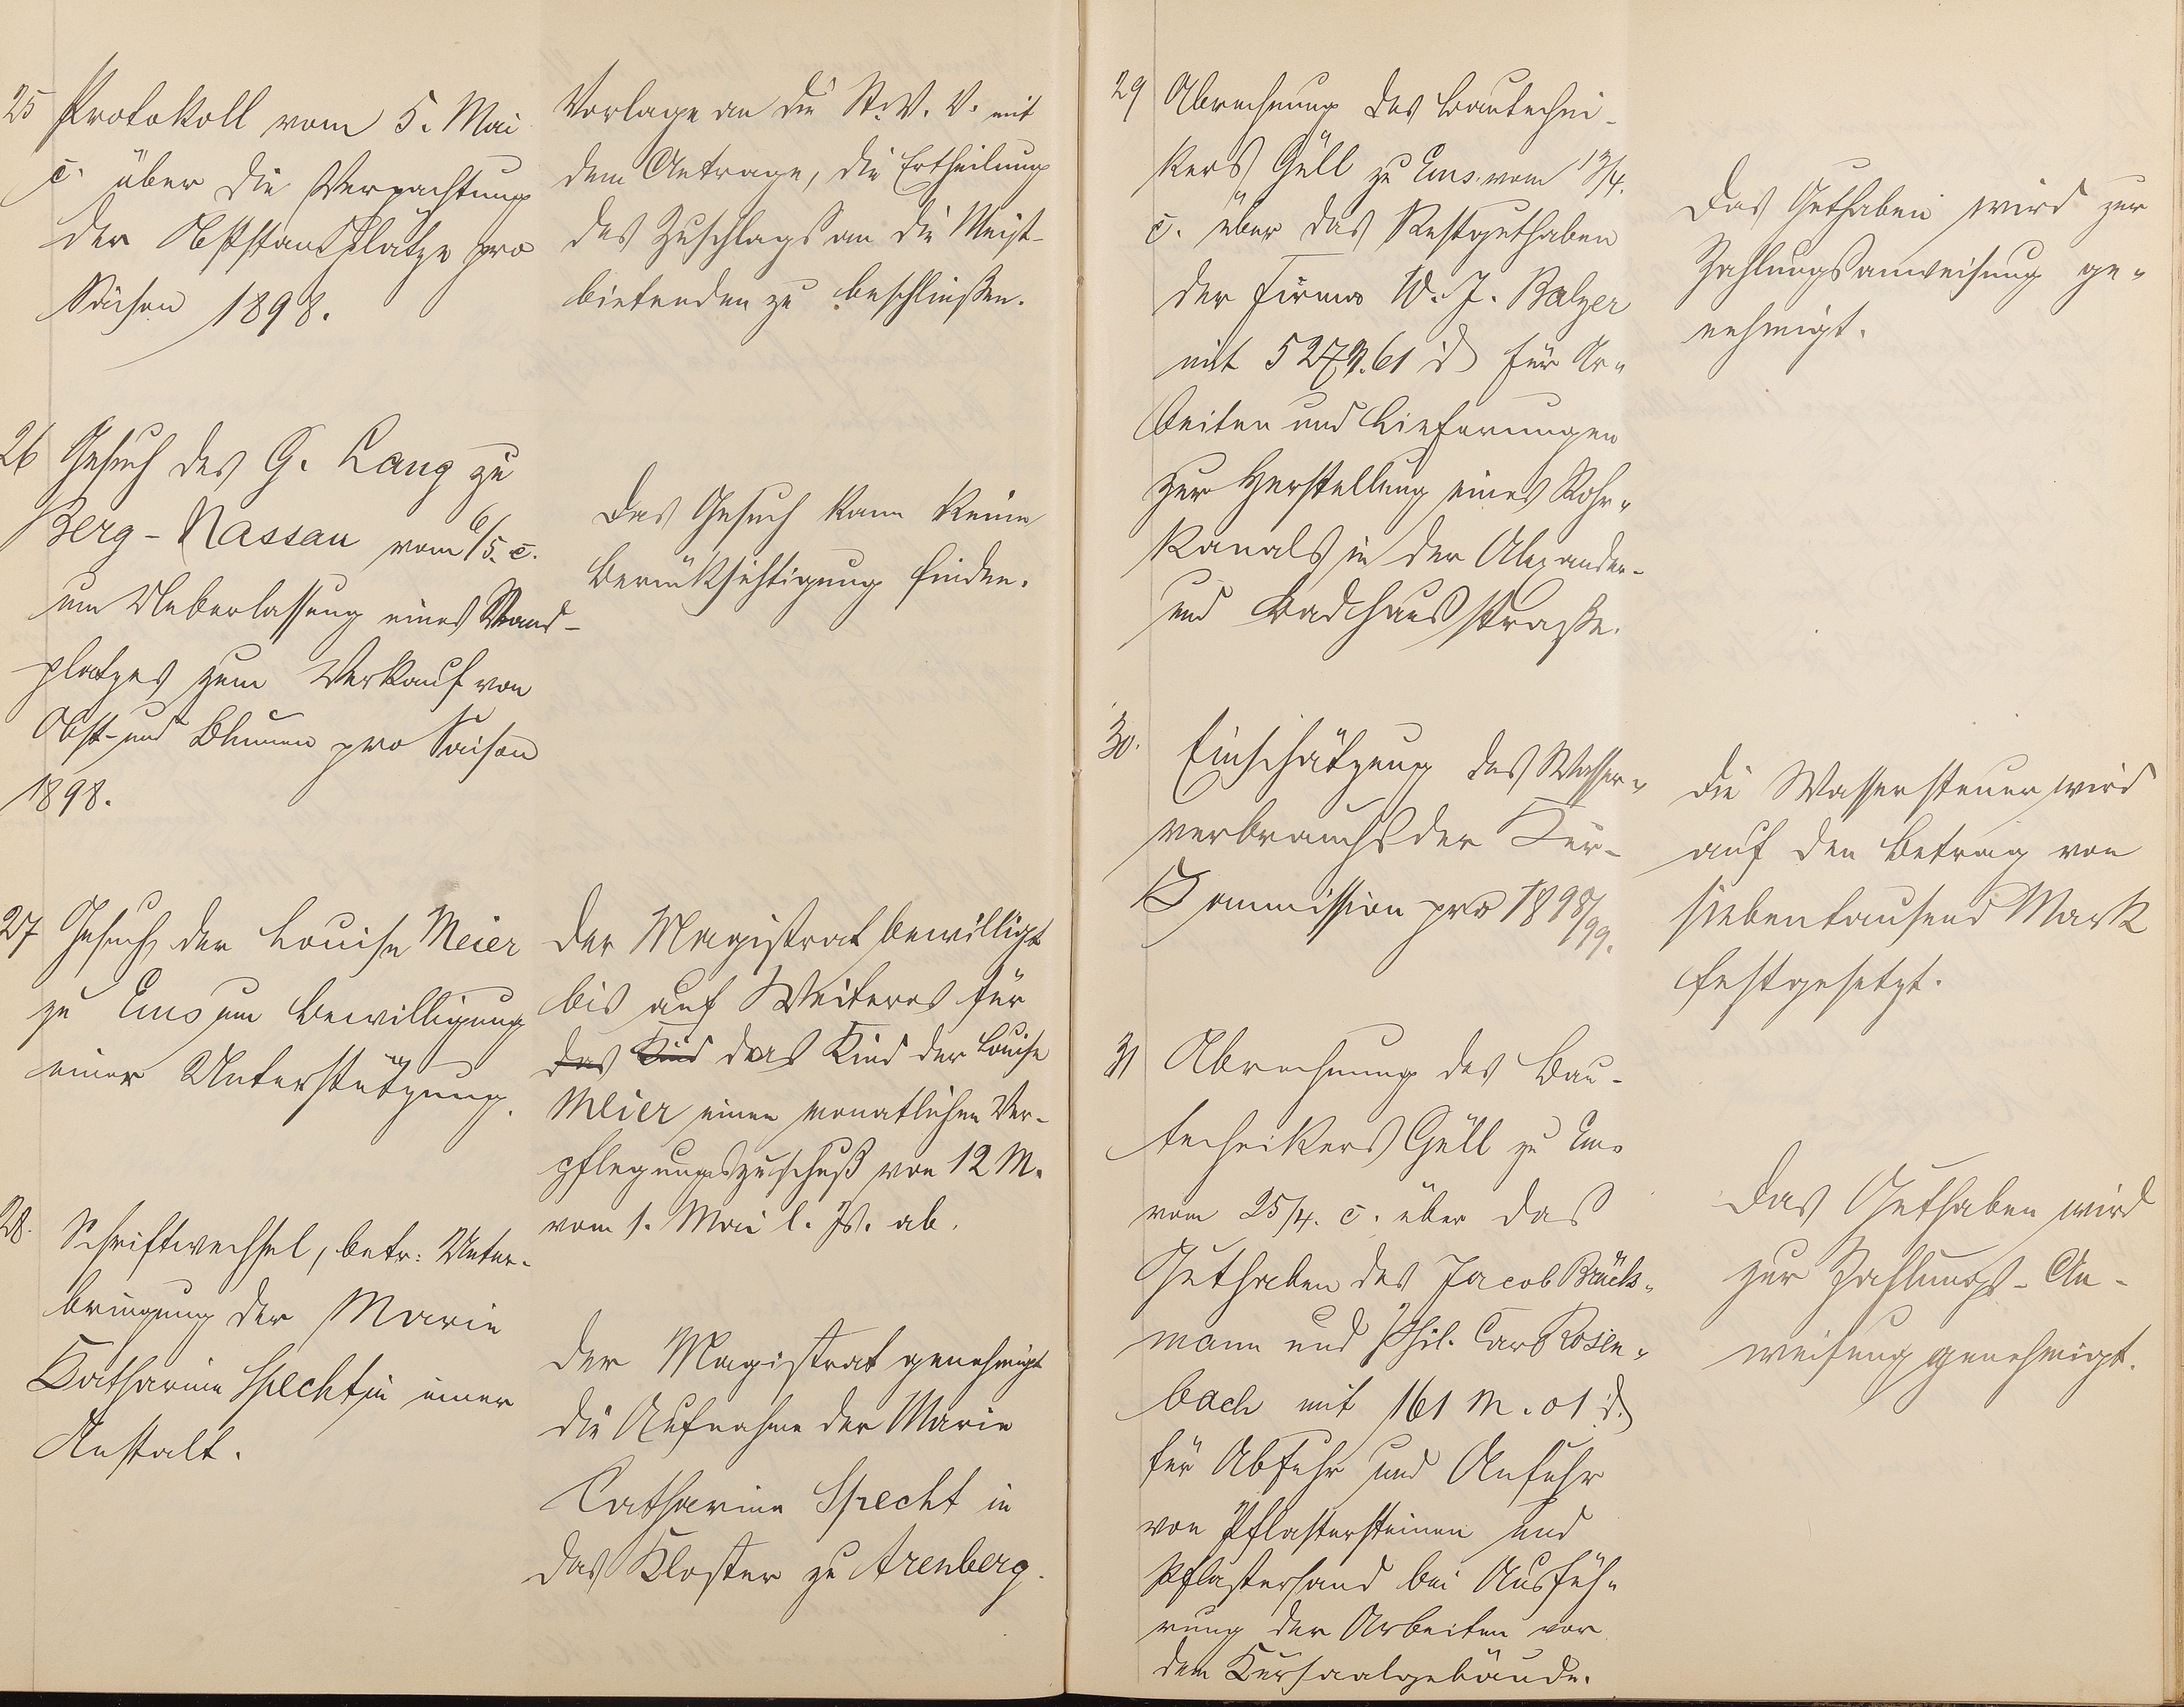 25 Protokoll vom 5. Mai
c. über die Verpachtung
der Obststandplätze pro
Saison 1898.
Vorlage an die St. V. V. mit
dem Antrage, die Ertheilung
des Zuschlags an die Meist-
bietenden zu beschließen.
26 Gesuch des G. Lang zu
Berg-Nassau vom 6/5. c.
um Ueberlassung eines Stand-
platzes zum Verkauf von
Obst- und Blumen pro Saison
1898.
Das Gesuch kann keine
Berücksichtigung finden.
27 Gesuch der Louise Meier
zu Ems um Bewilligung
einer Unterstützung.
Der Magistrat bewilligt
bis auf Weiteres für
das Kind das Kind der Louise
Meier einen monatlichen Ver-
pflegungszuschuß von 12 M.
vom 1. Mai l. Js. ab.
28. Schriftwechsel, betr. Unter-
bringung der Marie
Katharine Specht in einer
Anstalt.
Der Magistrat genehmigt
die Aufnahme der Marie
Catharine Specht in
das Kloster zu Arenberg.
29 Abrechnung des Bautechni-
kers Güll zu Ems vom 13/4.
c. über das Restguthaben
der Firma W. J. Balzer
mit 527 M. 61 d für Ar-
beiten und Lieferungen
zur Herstellung eines Rohr-
kanals in der Alexander-
und Badhausstraße.
Das Guthaben wird zur
Zahlungsanweisung ge-
nehmigt.
30. Einschätzung des Wasser-
verbrauchs der Kur-
Kommission pro 1898/99.
Die Wassersteuer wird
auf den Betrag von
siebentausend Mark
festgesetzt.
31 Abrechnung des Bau-
technikers Güll zu Ems
vom 25/4. c. über das
Guthaben des Jacob Brück-
mann und Phil. Carl Rosen-
bach mit 161 M. 01 d.
für Abfuhr und Anfuhr
von Pflastersteinen und
Pflastersand bei Ausfüh-
rung der Arbeiten vor
dem Kursaalgebäude.
Das Guthaben wird
zur Zahlungs-An-
weisung genehmigt.